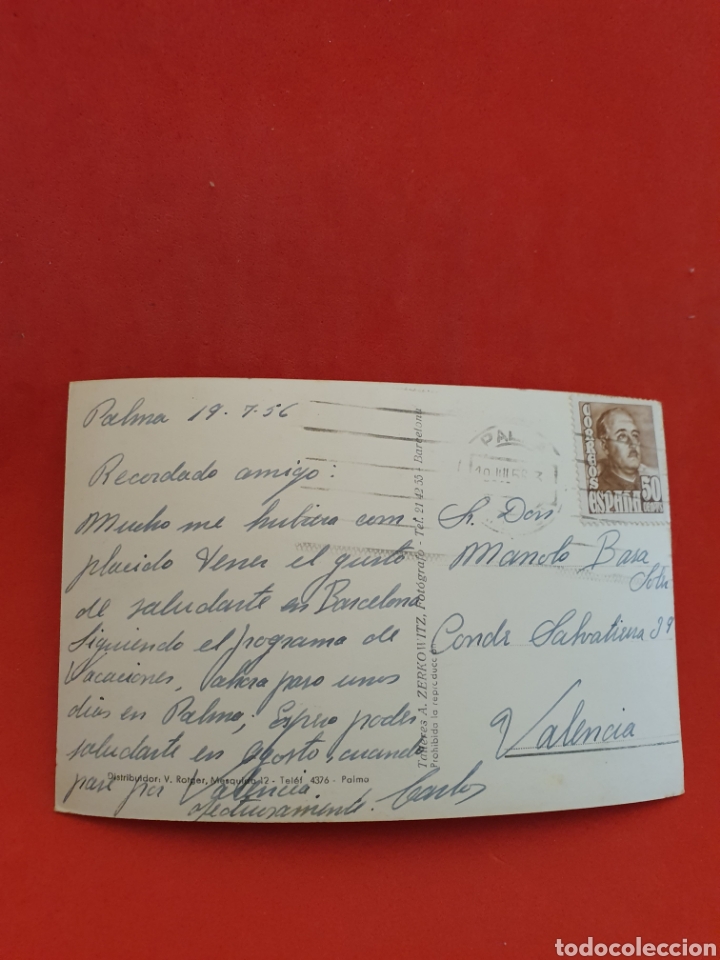 Palma 19-7-56
Recordado amigo:
Mucho me hubiera com
placido tener el gusto
de saludarte en Barcelona
Siguiendo el programa de
Vacaciones, ahora paso unos
días en Palma; Espero poder
saludarte en agosto, cuando
pase por Valencia
afectuosamente. Carlos
Distribuidor: V. Rotger, Mesquida 12 - Teléf 4376 - Palma
Talleres A. ZERKOWITZ, Fotógrafo - Tel. 21 42 33 - Barcelona
Prohibida la reproducción
PAL
CORREOS
ESPAÑA
50
Sr. Don
Manolo Basa
Conde Salvatierra 39
Valencia
todocoleccion